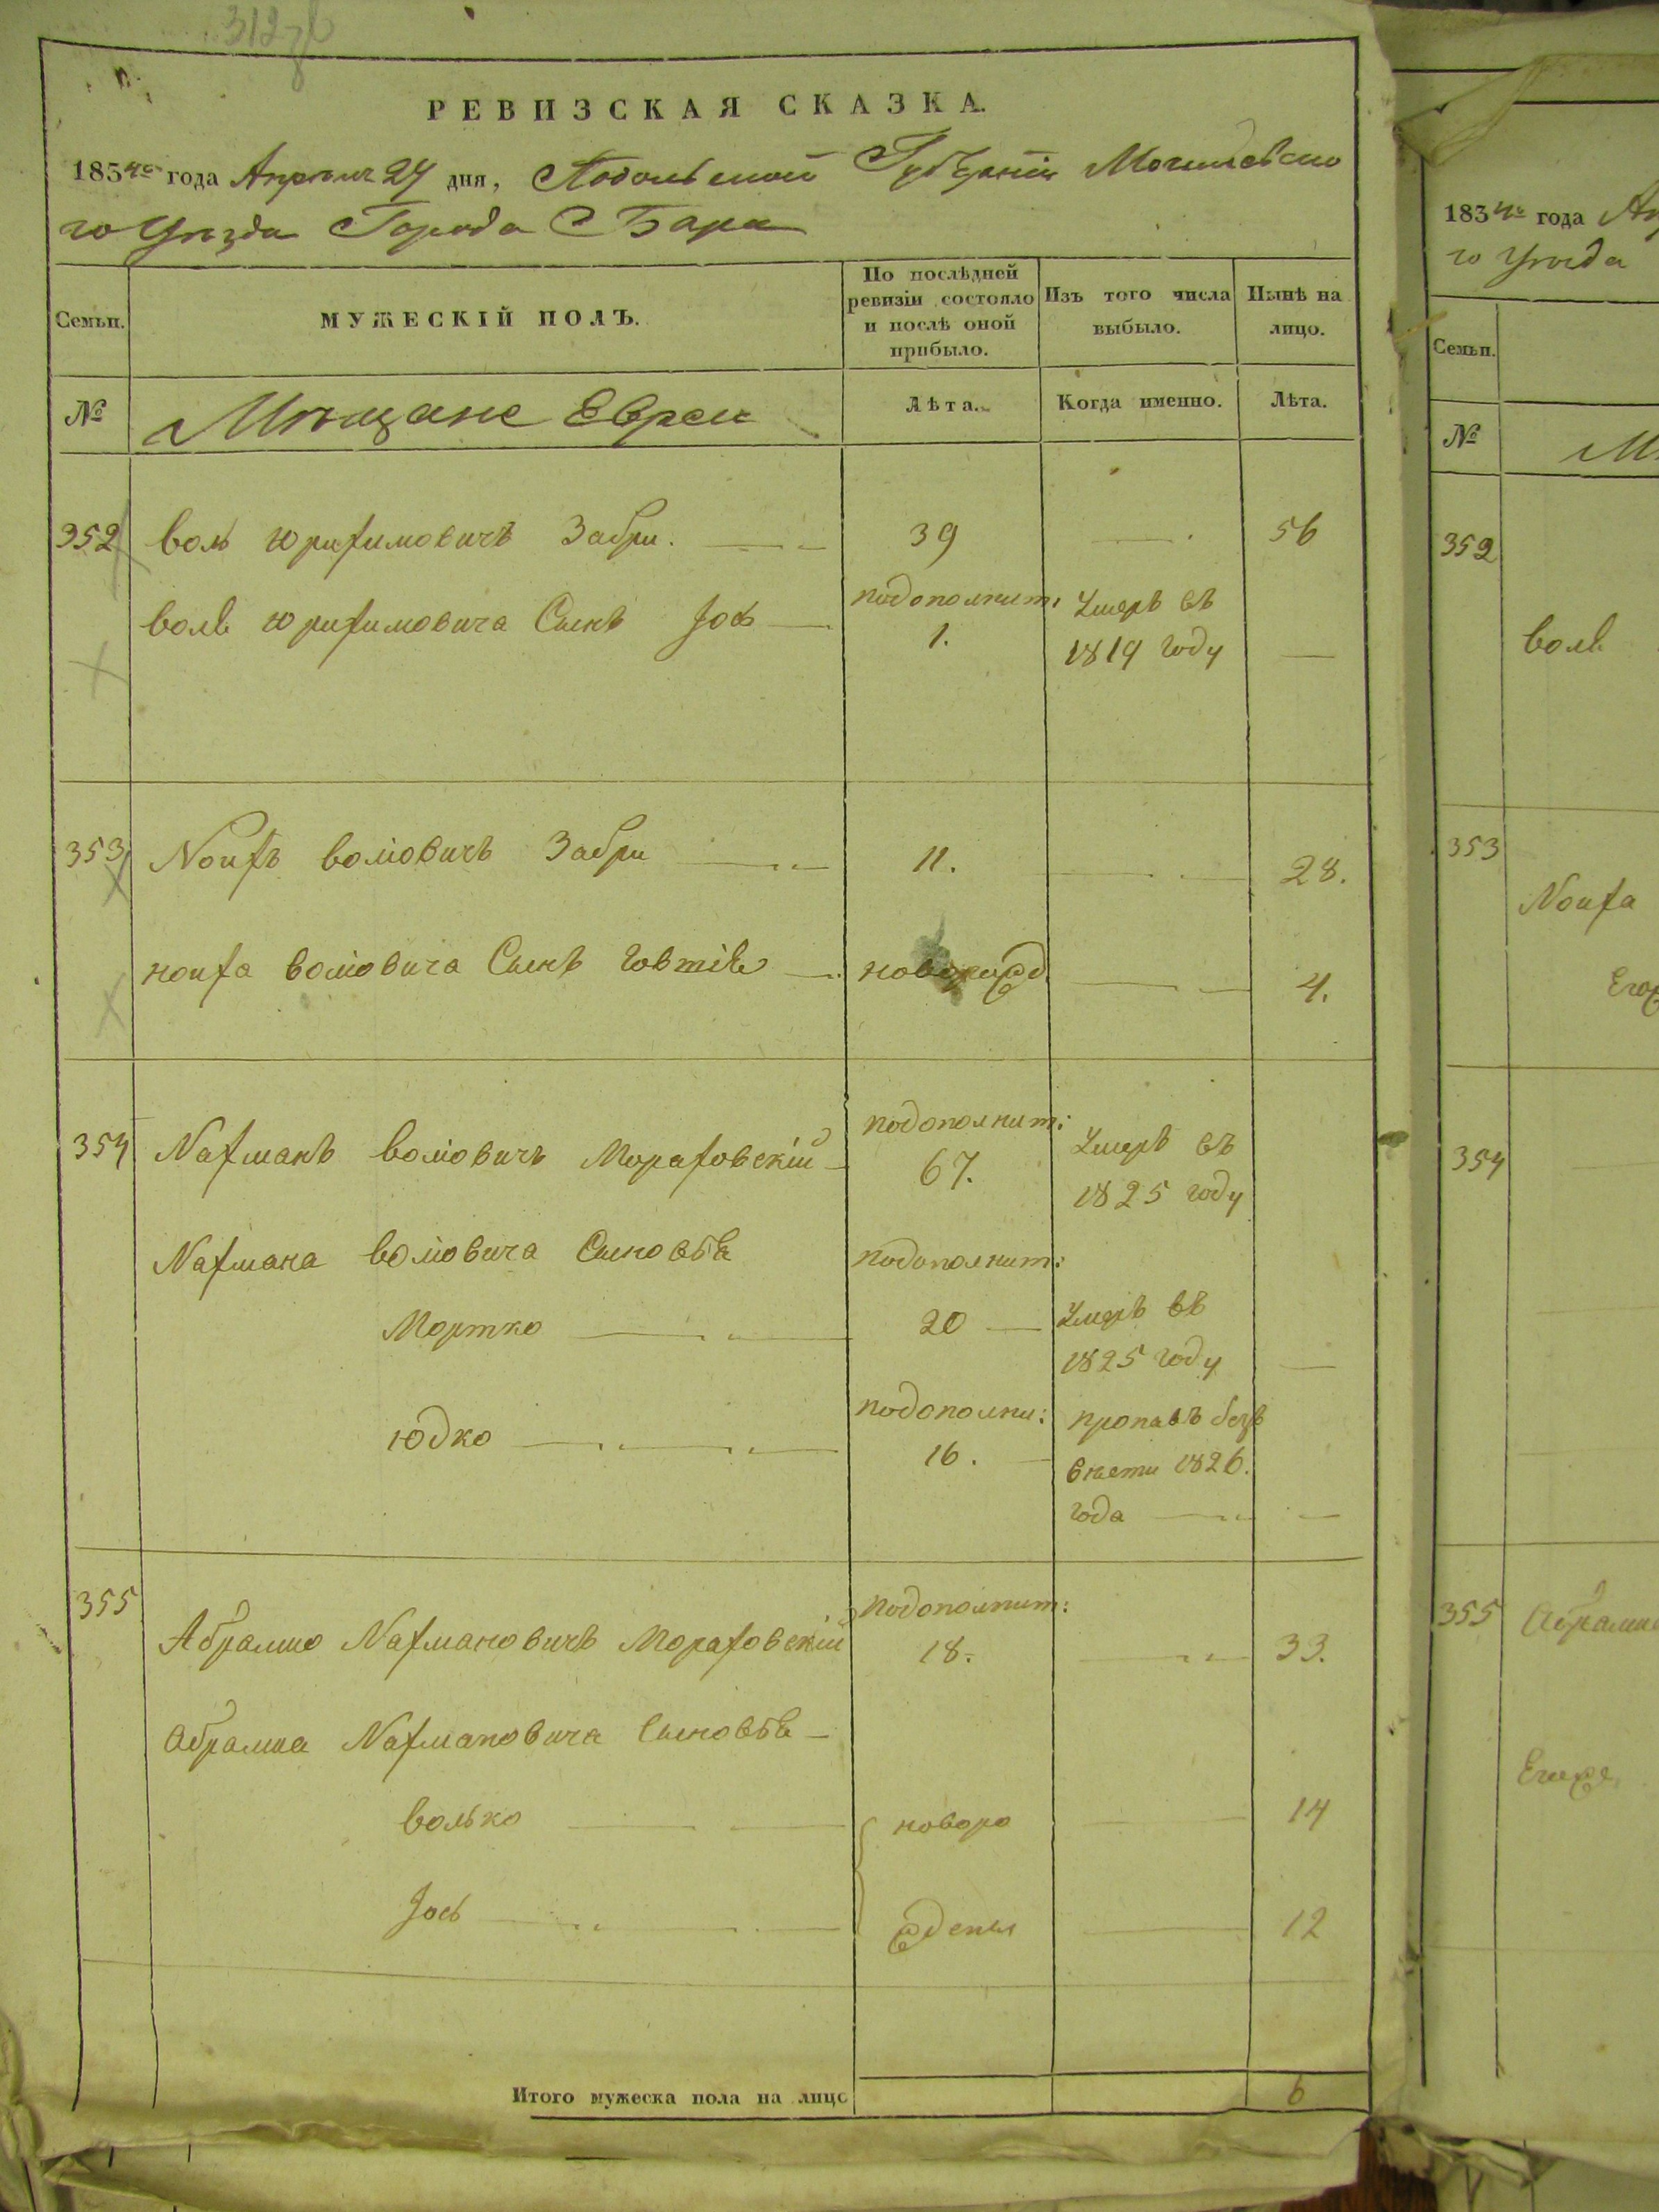 312 об
РЕВИЗСКАЯ СКАЗКА.
1834го года Апреля 24 дня, Подольской Губернии Могилевско
го Уезда Города Бара
Семьи.
МУЖЕСКІЙ ПОЛЪ.
По послѣдней ревизіи состояло и послѣ оной прибыло.
Изъ того числа выбыло.
Нынѣ на лицо.
№
Мѣщане Евреи
Лѣта.
Когда именно.
Лѣта.
352 Воль Забри. 39 56
Сынъ Іось подополнит: 1. Умеръ въ 1819 году
353 Воліовичъ Забри 11. 28.
Воліовича Сынъ новорожд 4.
354 Nахманъ Воліовичъ Мораховскій подополнит: 67. Умеръ въ 1825 году
Nахмана Воліовича Сыновья подополнит:
Мортко 20 Умеръ въ 1825 году
Юдко подополни: 16. пропавъ безъ вѣсти 1826. года
355
Абрамко Nахмановичъ Мораховскій подополнит: 18. 33.
Абрамка Nахмановича Сыновья
Волько новоро 14
Іось жденыя 12
Итого мужеска пола на лицо 6
1834го года
го Уезда
Семьи.
№
352
Воля
353
354
355 Абрамка